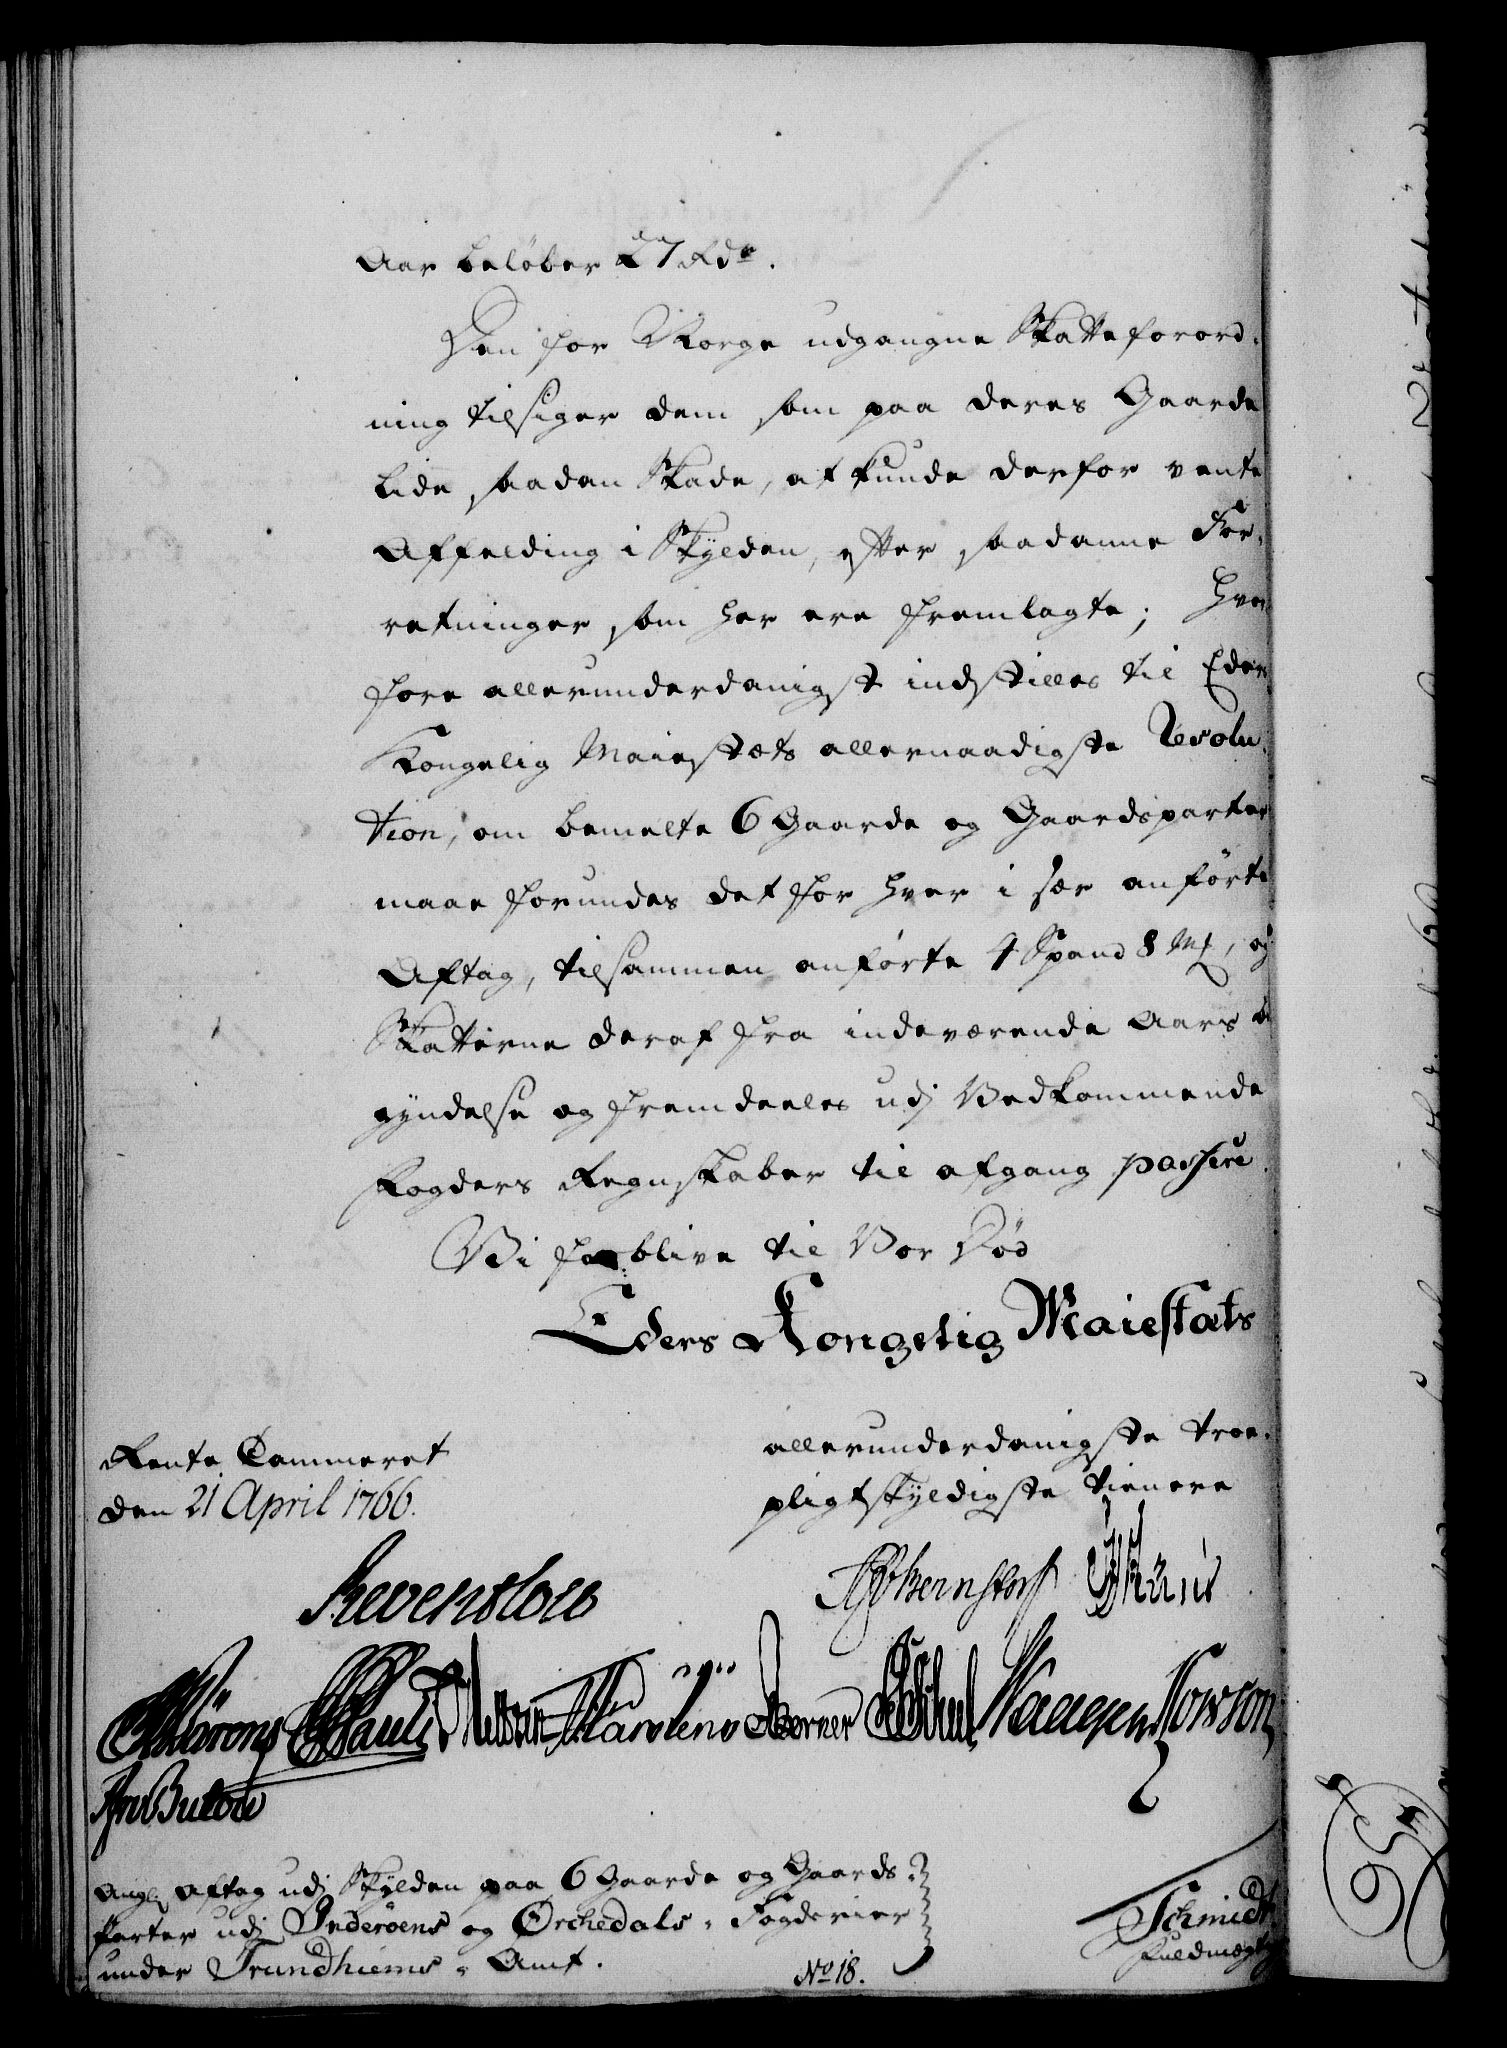 Aar beløber 27 Rdr.
Den for Norge udgangne Skatteforord-
ning tilsiger dem som paa deres Gaarde
lide saadan Skade, at kunde derfor vente
Affelding i Skylden, efter saadanne For-
retninger som her ere fremlagte; hvor
fore allerunderdanigst indstilles til Eders
Kongelig Maiestæts allernaadigste Resolu-
tion, om bemelte 6 Gaarde og Gaardsparter
maae forundes det for hver i sær anførte
Aftag, tilsammen anførte 4 Spand 8 Mk, og
Skatterne deraf fra indeværende Aars be
gyndelse og fremdeeles udj Vedkommende
Fogders Regnskaber til afgang passere.
Vi forblive til Vor Død
Eders Kongelig Maiestæts
allerunderdanigste troe-
pligtskyldigste tienere
Rente Cammeret
den 21 April 1766.
Reventlow
Bernstorf
Pauli
Berner
Bulow
Angl. Aftag udj Skylden paa 6 Gaarde og Gaards-
Parter udj Inderøens og Orchedals Fogderier
under Trundhiems Amt.
No 18.
Schmidt
Fuldmægtig